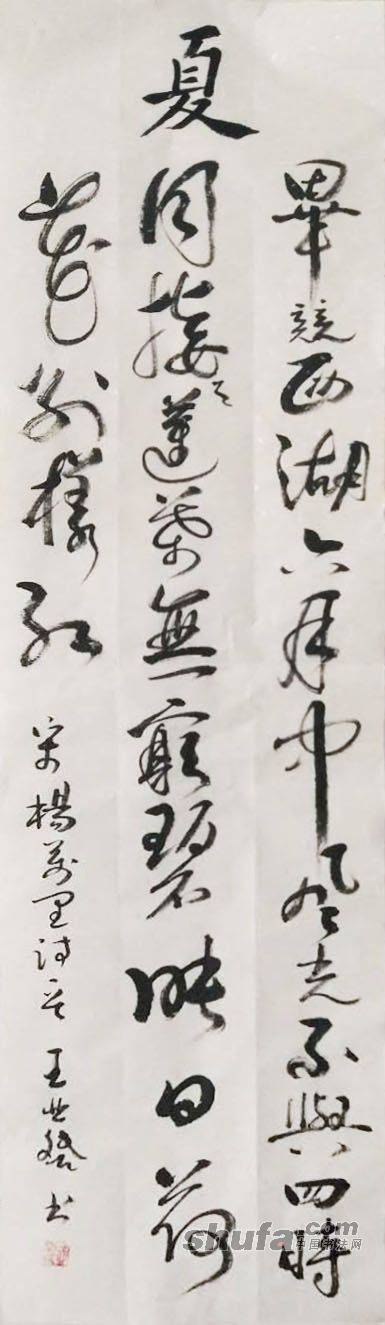 夏
畢競西湖六月中風光不與四時
同接天蓮葉無窮碧映日荷
花別樣紅
宋楊萬里詩 王世 书
shufa.com
中国书法网